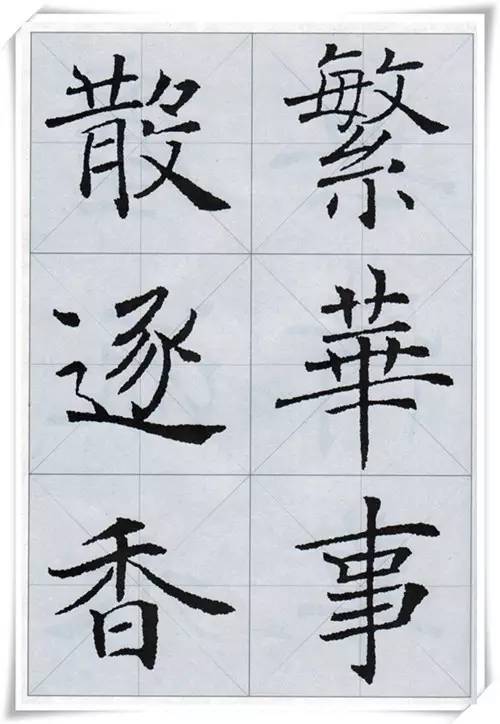 繁華事
散逐香